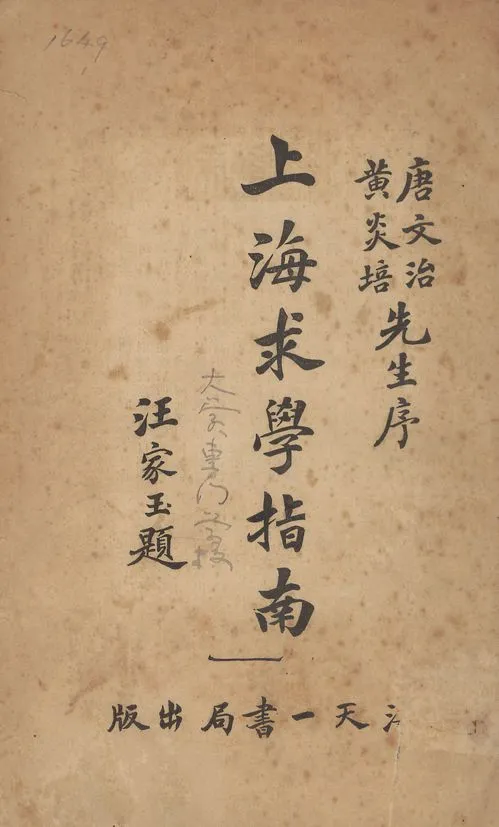 1649
唐文治
黄炎培
先生序
上海求學指南
大学專门学校
汪家玉題
天一書局出版